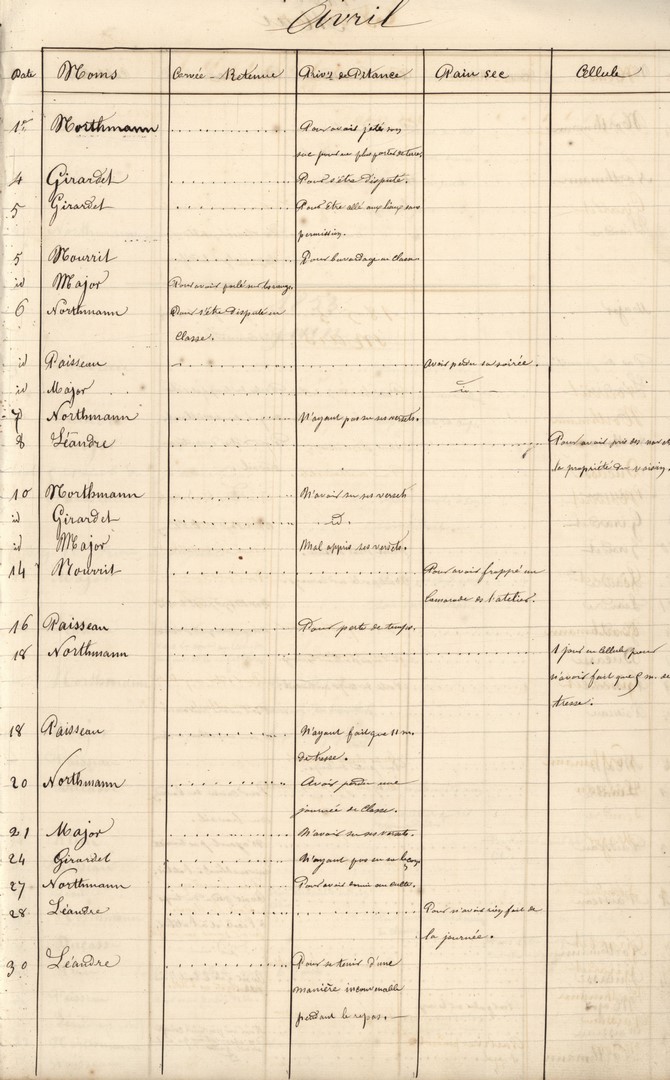 Avril
Date Noms Corvée - Retenue Privon de Pitance Pain sec Cellule
1er Northmann Pour avoir jeté son
sac pour ne plus porter de terre.
4 Girardet Pour s'être disputé.
5 Girardet Pour être allé aux lieux sans
permission.
5 Nourrit Pour bavardage en classe
id Major Pour avoir parlé sur les rangs.
6 Northmann Pour s'être disputé en
Classe.
id Paisseau Avoir perdu sa soirée.
id Major id
7 Northmann N'ayant pas su ses versets.
8 Léandre Pour avoir pris des noix et
la propriété du voisin.
10 Northmann N'avoir su ses versets
id Girardet id.
id Major Mal appris ses versets.
14 Nourrit Pour avoir frappé un
Camarade de l'atelier.
16 Paisseau Pour perte de temps.
18 Northmann 1 jour en Cellule pour
n'avoir fait que 5 m. de
tresse.
18 Paisseau N'ayant fait que 11 m.
de tresse.
20 Northmann Avoir perdu une
journée de Classe.
21 Major N'avoir su ses versets.
24 Girardet N'ayant pas su sa leçon
27 Northmann Pour avoir au culte.
28 Léandre Pour n'avoir rien fait de
la journée.
30 Léandre Pour se tenir d'une
manière inconvenable
pendant le repas.